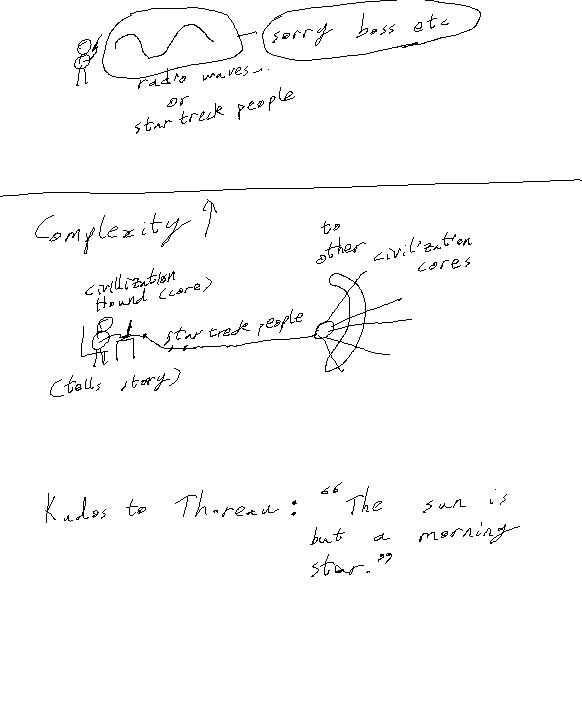 sorry boss etc
radio waves...
or
star treck people
Complexity ↑
to
other civilization
cores
civillization
Hound (core)
star treck people
(tells story)
Kudos to Thoreau: “The sun is
but a morning
star.”